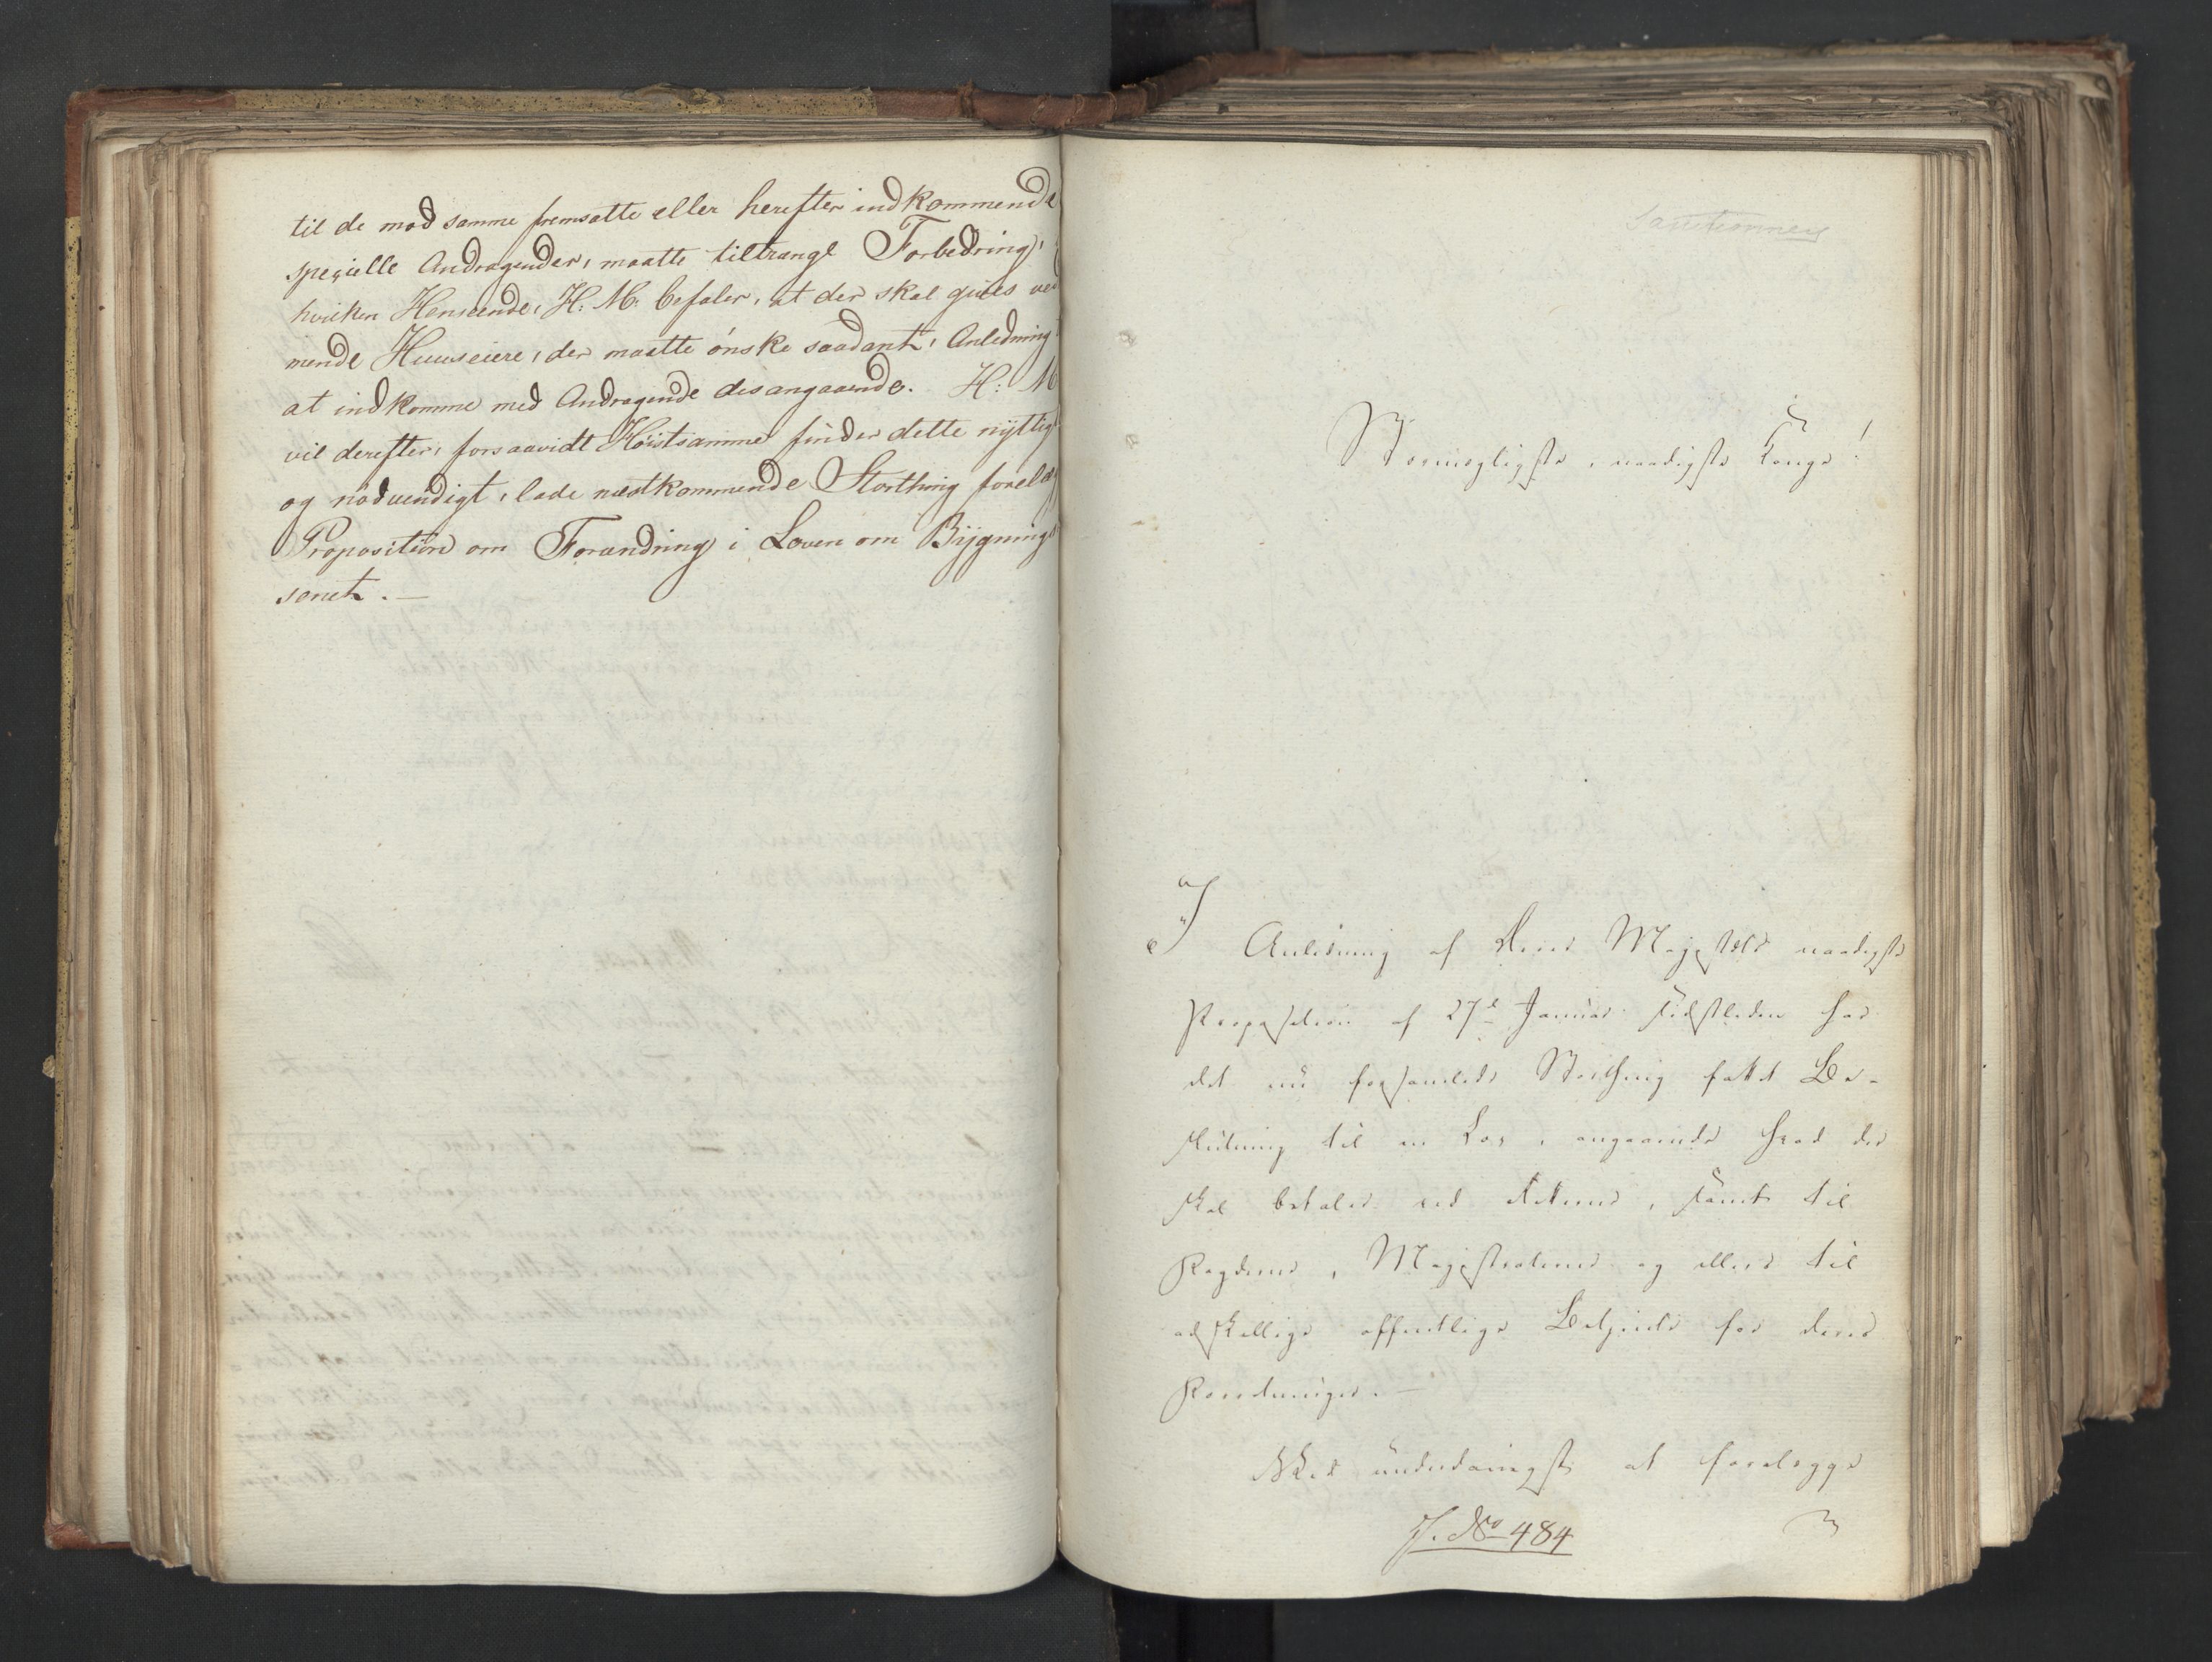 til de mod samme fremsatte eller herefter indkommende
specielle Andragender, maatte tiltrænge Forbedring, i
hvilken Henseende, H: M: befaler, at der skal gives ved
mende Huuseiere, der maatte ønske saadant, Anledning
at indkomme med Andragende desangaaende. H: M
vil derefter, forsaavidt Høistsamme finder dette nyttigt
og nødvendigt, lade næstkommende Storthing forelæg
Proposition om Forandring i Loven om Bygnings
senet.—
Sanctionneres
Stormægtigste, naadigste Konge!
I Anledning af Deres Majestæts naadigste
Proposition af 27d Januar sidstleden har
det nu forsamlede Storthing fattet Be-
slutning til en Lov, angaaende hvad der
skal betales ved Retterne, samt til
Fogderne, Magistraterne og ellers til
adskillige offentlige Betjente for deres
Forretninger.—
Ved underdanigst at forelægge
J. No 484